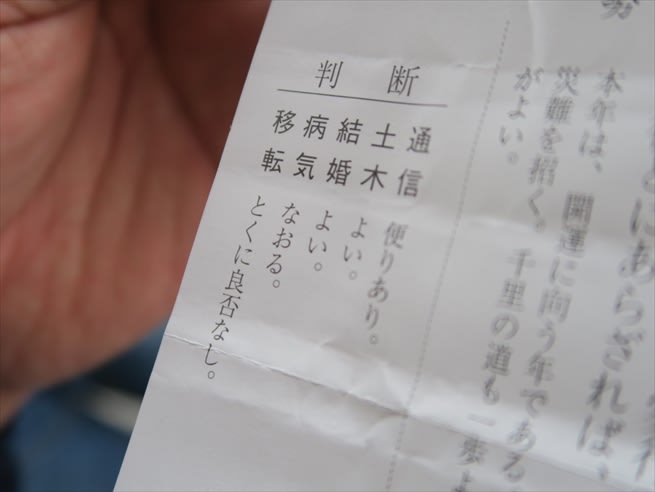 勢
にあらざれば、
本年は、開運に向う年である。
災難を招く。千里の道も一歩よ
がよい。
判断
通信 便りあり。
土木 よい。
結婚 よい。
病気 なおる。
移転 とくに良否なし。